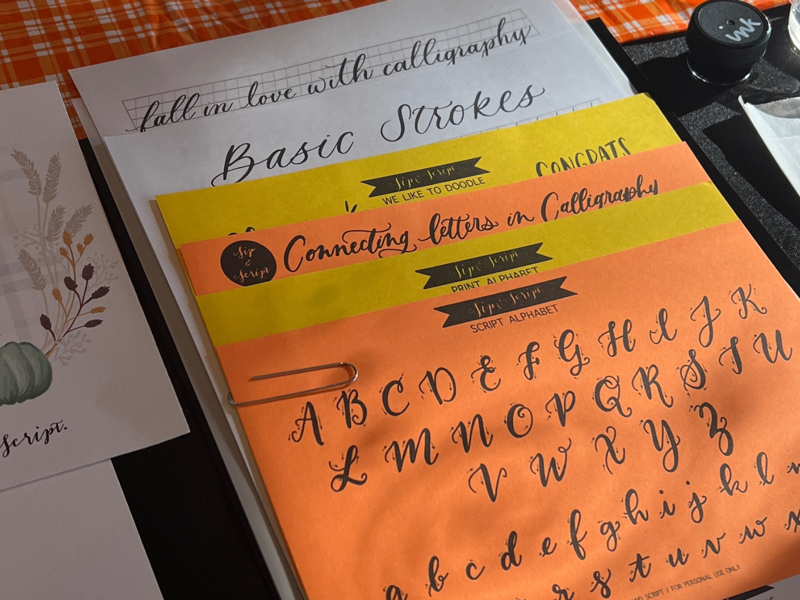 ink
fall in love with calligraphy
Basic Strokes
Sip & Script
WE LIKE TO DOODLE
CONGRATS
Sip
&
Script
Connecting letters in Calligraphy
Sip & Script
PRINT ALPHABET
Sip & Script
SCRIPT ALPHABET
A B C D E F G H I J K
L M N O P Q R S T U
V W X Y Z
a b c d e f g h i j k l
r s t u v w x
SCRIPT / FOR PERSONAL USE ONLY
Script.